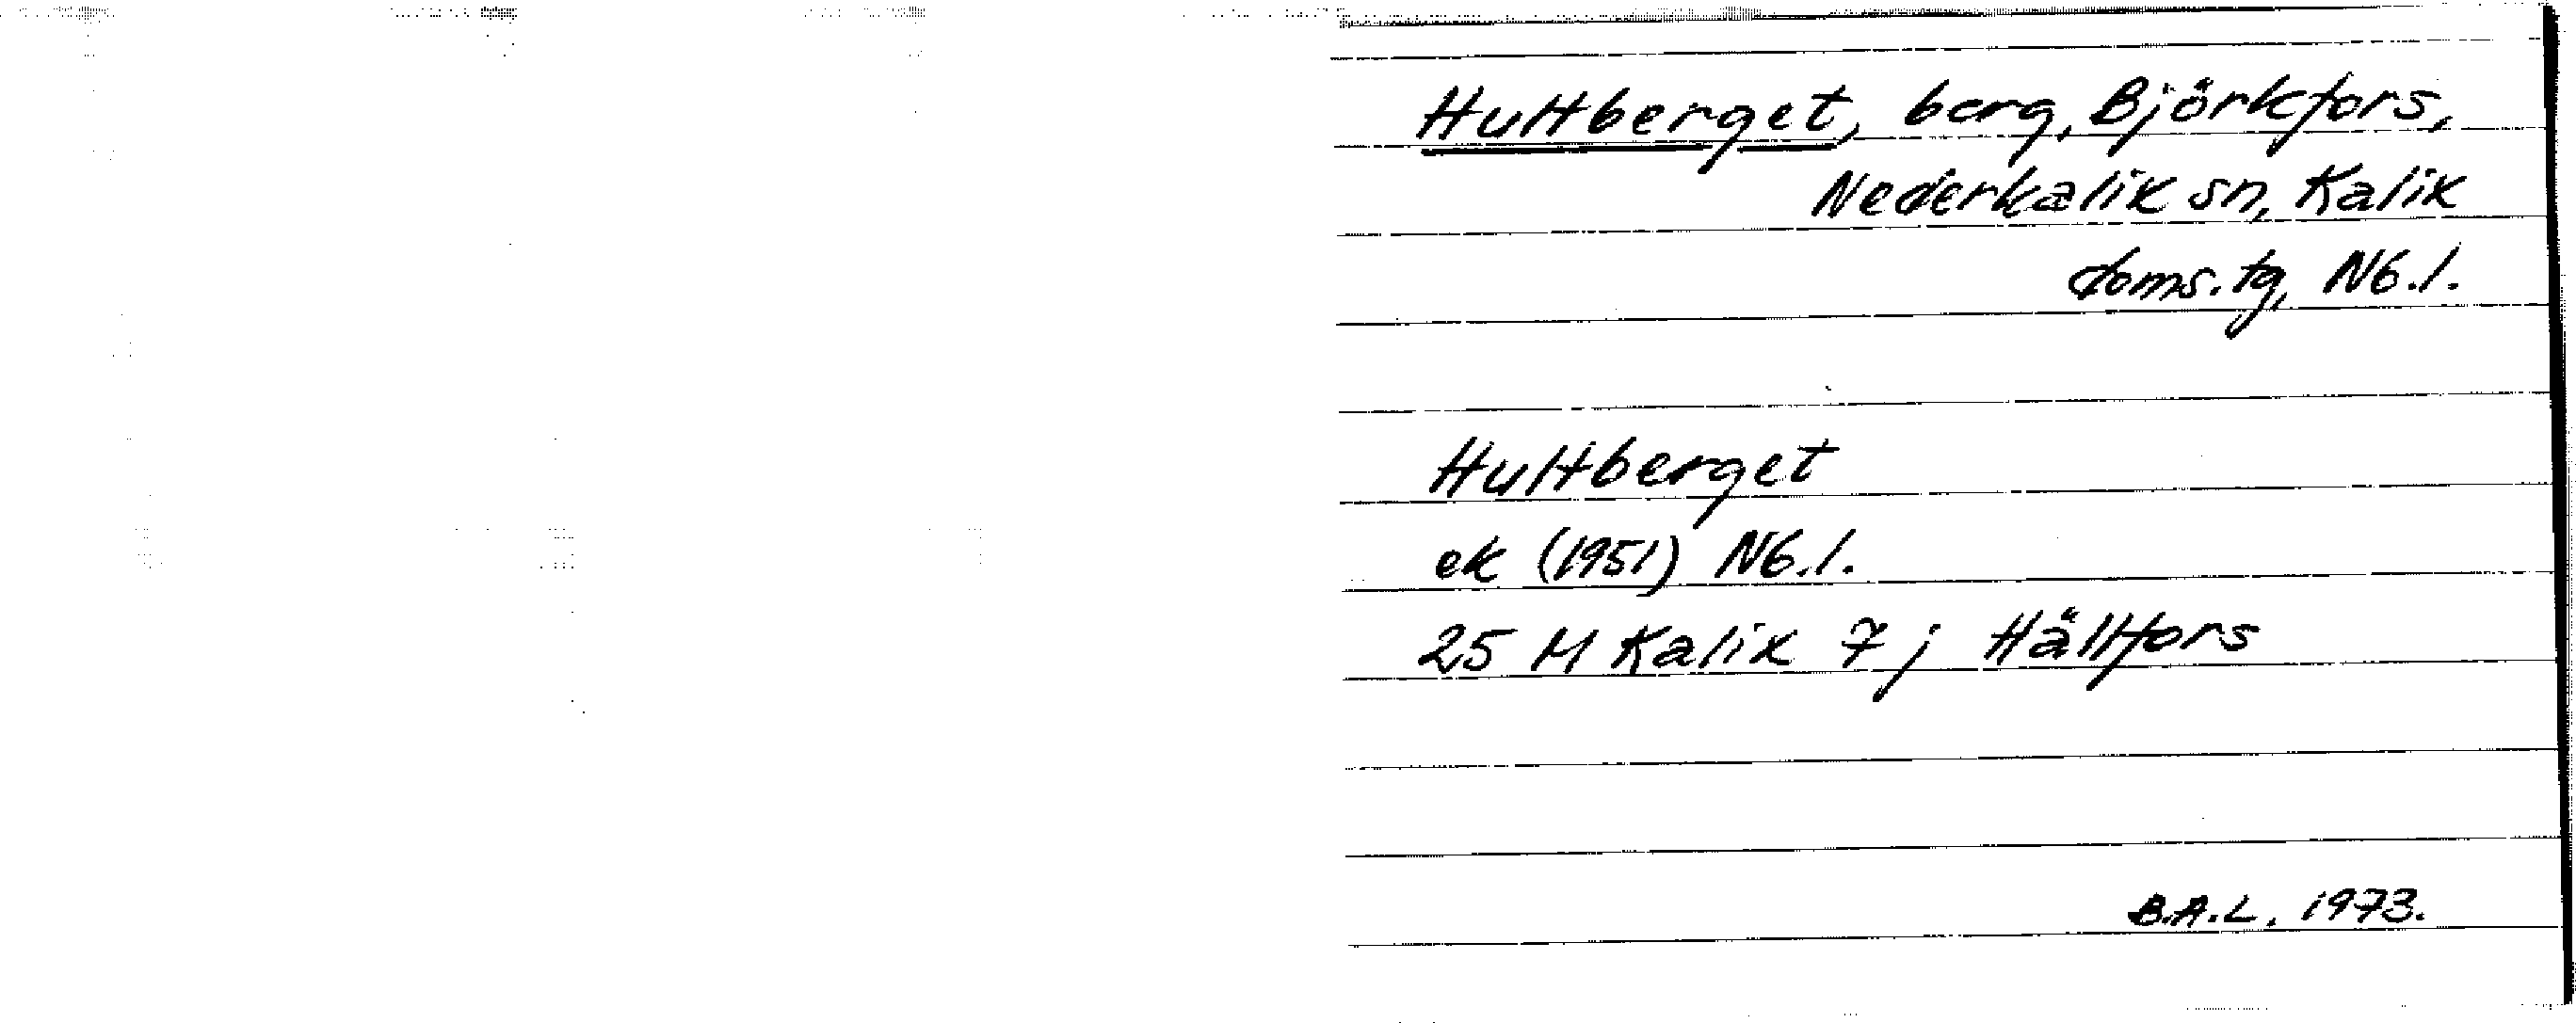 Hultberget, berg, Björkfors,
Nederkalix sn, Kalix
doms. tg, Nb. l.
Hultberget
ek (1951) Nb. l.
25 M Kalix 7 j Hällfors
B.A.L. 1973.